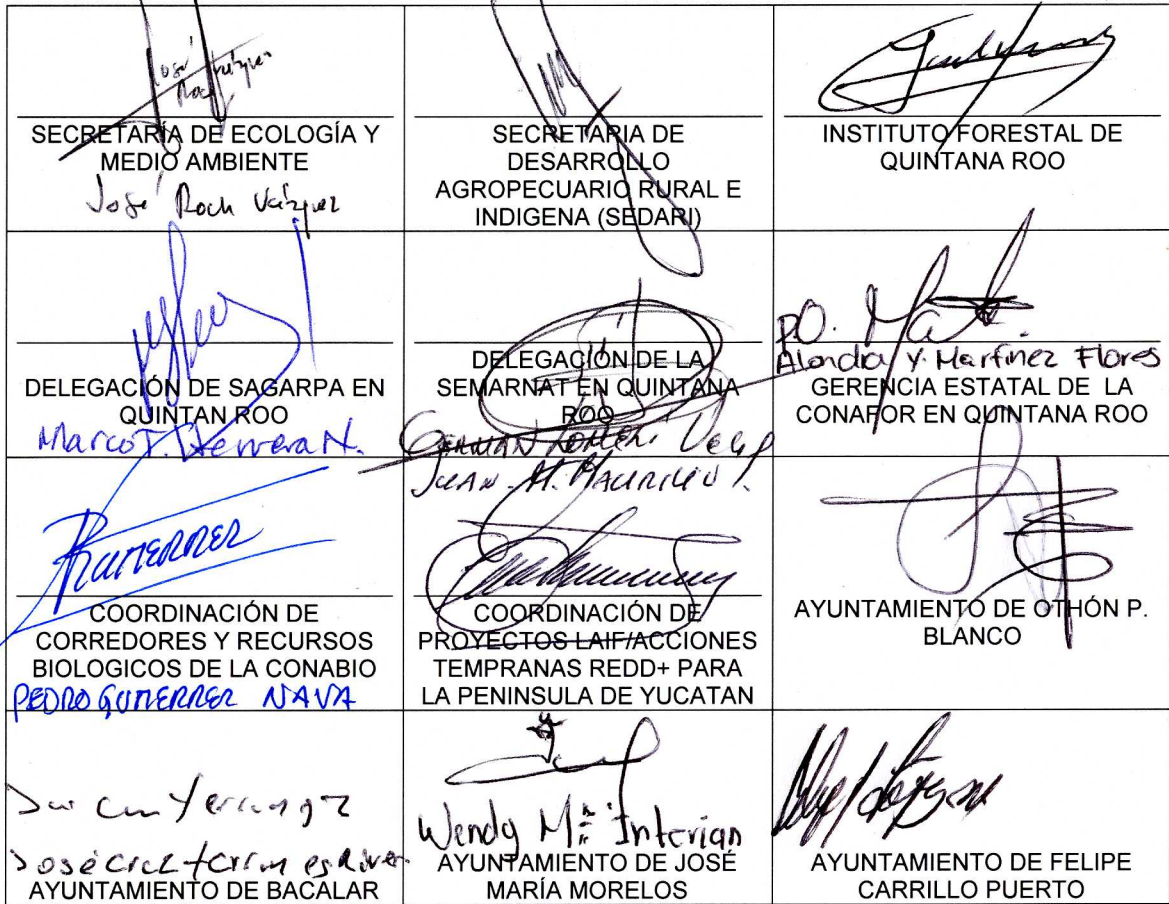 José
Roch Vázquez
SECRETARÍA DE ECOLOGÍA Y
MEDIO AMBIENTE
José Roch Vázquez
SECRETARIA DE
DESARROLLO
AGROPECUARIO RURAL E
INDIGENA (SEDARI)
INSTITUTO FORESTAL DE
QUINTANA ROO
DELEGACIÓN DE SAGARPA EN
QUINTAN ROO
Marco T. Herrera N.
DELEGACIÓN DE LA
SEMARNAT EN QUINTANA
ROO
GERMAN
JUAN M. MAURILIO
P.O.
Alondra Y. Martínez Flores
GERENCIA ESTATAL DE LA
CONAFOR EN QUINTANA ROO
COORDINACIÓN DE
CORREDORES Y RECURSOS
BIOLOGICOS DE LA CONABIO
PEDRO GUTIERREZ NAVA
COORDINACIÓN DE
PROYECTOS LAIF/ACCIONES
TEMPRANAS REDD+ PARA
LA PENINSULA DE YUCATAN
AYUNTAMIENTO DE OTHÓN P.
BLANCO
José
AYUNTAMIENTO DE BACALAR
Wendy Mª Interian
AYUNTAMIENTO DE JOSÉ
MARÍA MORELOS
AYUNTAMIENTO DE FELIPE
CARRILLO PUERTO